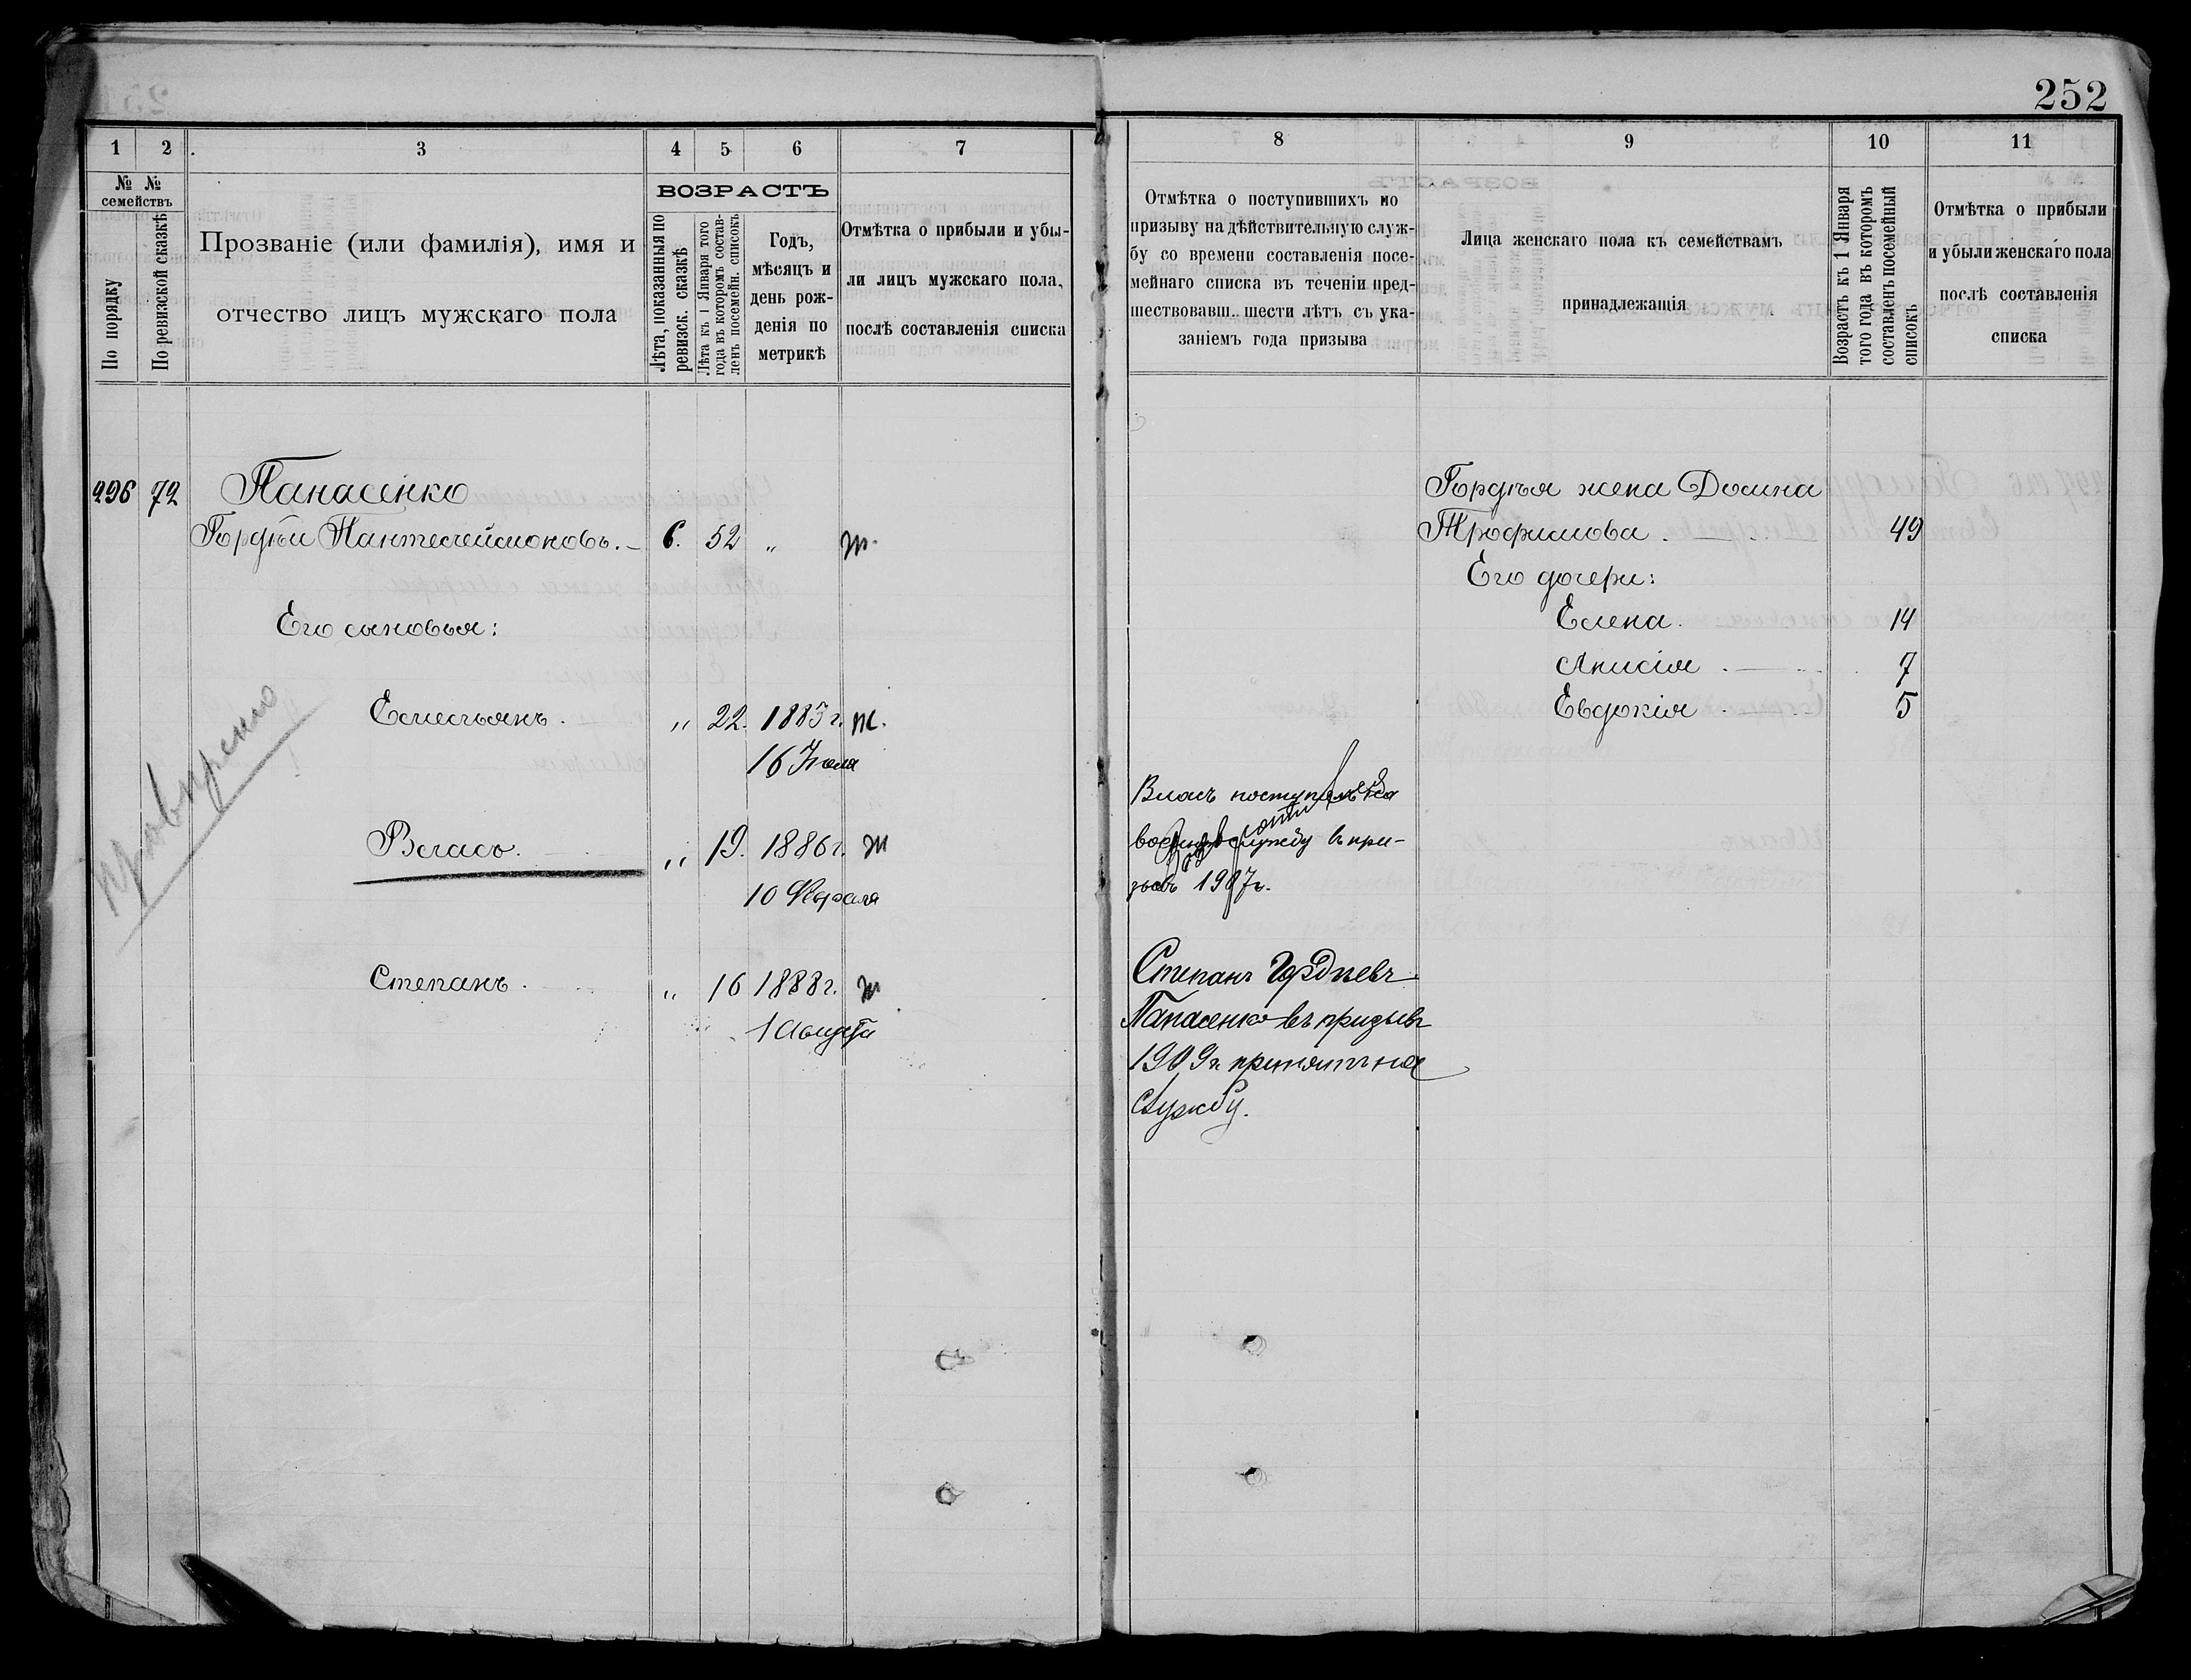 252
1 2 3 4 5 6 7
№ №
семействъ
По порядку
По ревизской сказкѣ
Прозваніе (или фамилія), имя и
отчество лицъ мужскаго пола
ВОЗРАСТЪ
Лѣта, показанныя по
ревизск. сказкѣ
Лѣта къ 1 Января того
года въ которомъ состав-
ленъ посемейн. списокъ
Годъ,
мѣсяцъ и
день рож-
денія по
метрикѣ
Отмѣтка о прибыли и убы-
ли лицъ мужскаго пола,
послѣ составленія списка
296 72 Панасенко
Гордѣй Пантелеймоновъ. 6. 52 „
Его сыновья:
Емельянъ. „ 22. 1883 г.
16 Іюля
Власъ. „ 19. 1886 г.
10 Февраля
Степанъ. „ 16 1888 г.
1 Августа
провѣрено
8 9 10 11
Отмѣтка о поступившихъ по
призыву на дѣйствительную служ-
бу со времени составленія посе-
мейнаго списка въ теченіи пред-
шествовавш.. шести лѣтъ съ ука-
заніемъ года призыва
Лица женскаго пола къ семействамъ
принадлежащія
Возрастъ къ 1 Января
того года въ которомъ
составленъ посемейный
списокъ
Отмѣтка о прибыли
и убыли женскаго пола
послѣ составленія
списка
Гордѣя жена Домна
Трофимова. 49
Его дочери:
Елена. 14
Анисія 7
Евдокія 5
Власъ поступилъ на
военную службу въ при-
зывъ 1907 г.
Степанъ Гордѣевъ
Панасенко въ призывъ
1909 г. принятъ на
службу.